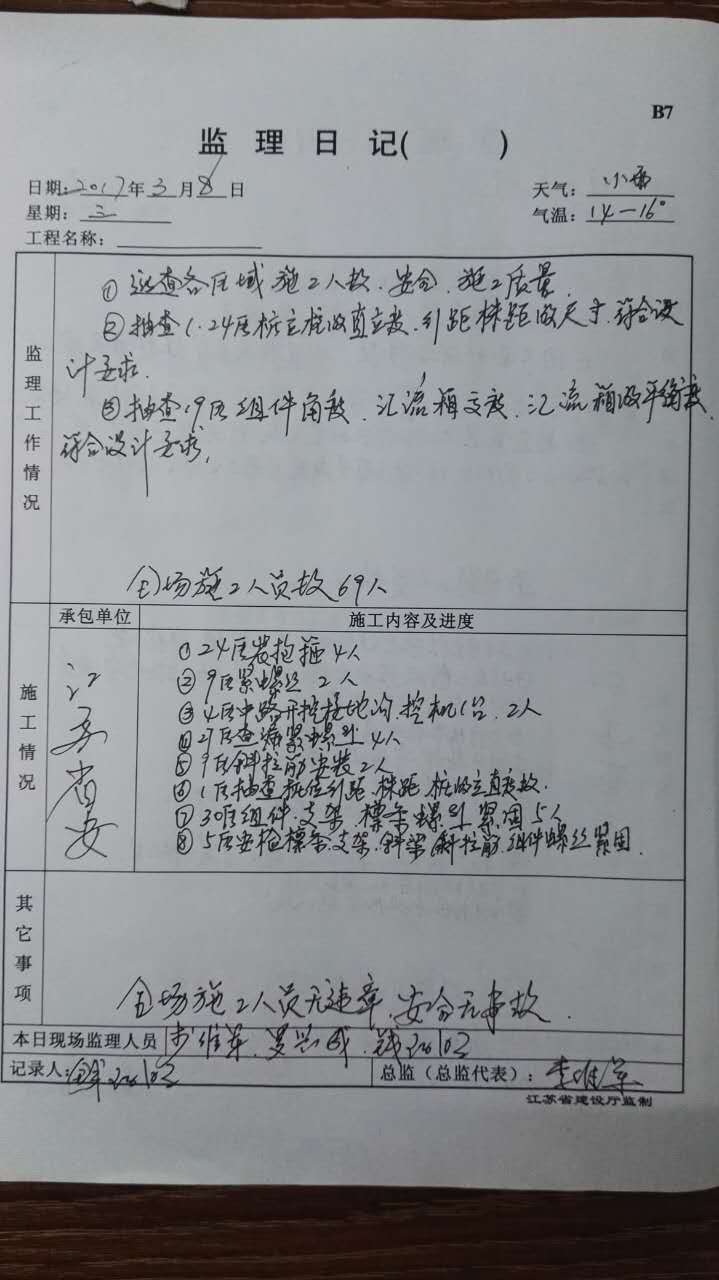 B7
监 理 日 记( )
日期: 2017年3月8日
天气: 小雨
星期: 三
气温: 14—16°
工程名称:
监理工作情况
① 巡查各区域施工人数、安全、施工质量.
② 抽查1.24区桩立柱的直立度、引距株距的尺寸.符合设
计要求.
③抽查19区组件角度、汇流箱交度、汇流箱的平衡度.
符合设计要求,
全场施工人员数69人
承包单位
施工内容及进度
施工情况
江苏省安
① 24区装抱箍4人
② 9区紧螺丝 2人
③ 4区中路开挖接地沟.挖机1台. 2人
④ 21区查漏紧螺丝 4人
⑤ 9区斜拉筋安装2人
⑥ 1区抽查桩位引距、株距、桩的立直度数.
⑦ 30区组件.支架 檩条 螺丝 紧固 5人
⑧ 5区安检檩条.支架.斜梁 斜拉筋.组件螺丝紧固.
其它事项
全场施工人员无违章、安全无事故.
本日现场监理人员
记录人:
总监（总监代表）:
江苏省建设厅监制